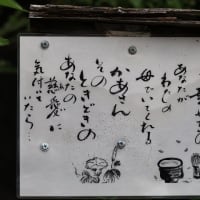 あなたが
わたしの
母でいてくれる
かあさん
その
ときどきの
あなたの
慈愛に
気付いて
いたら…